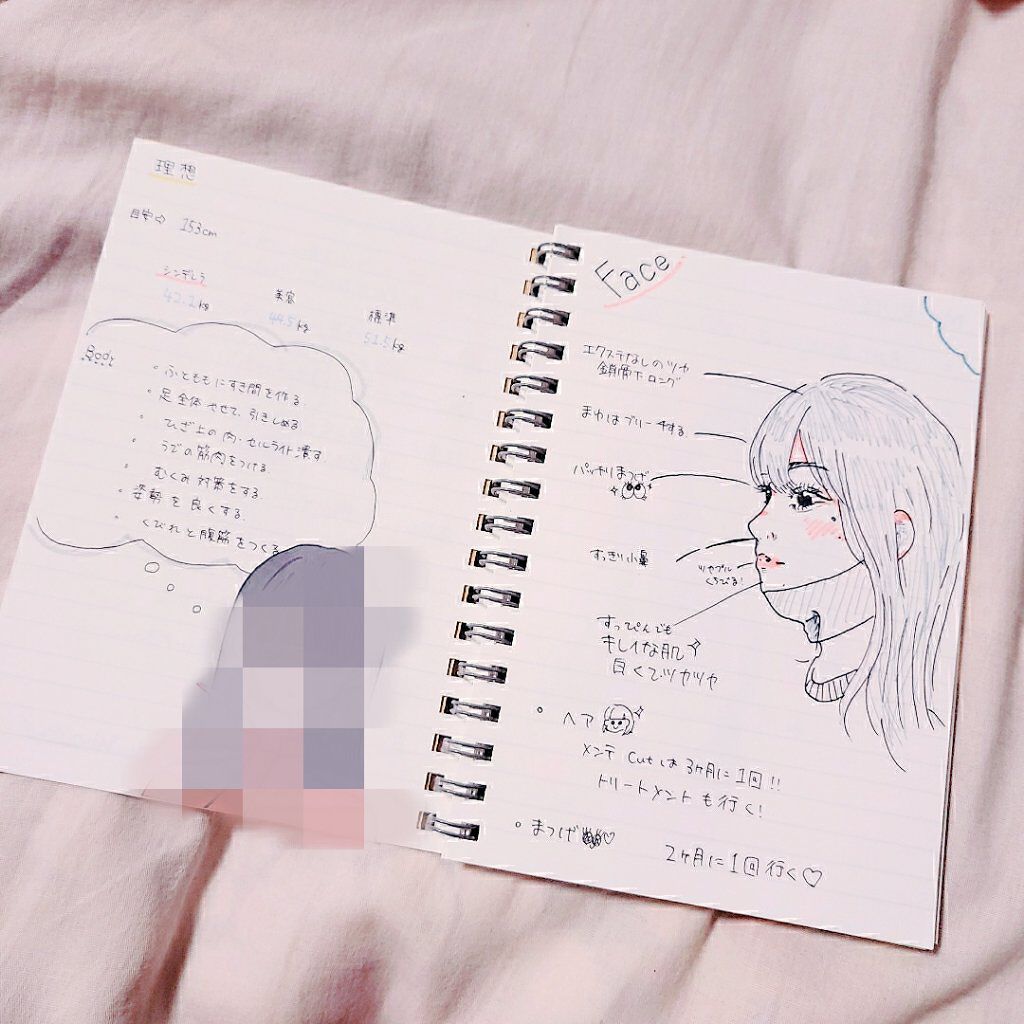 理想
目安⇨ 153cm
シンデレラ
42.1kg
美容
44.5kg
標準
51.5kg
Body
・ふとももにすき間を作る.
・足全体やせて、引きしめる
・ひざ上の肉・セルライト潰す
・うでの筋肉をつける.
・むくみ対策をする
・姿勢を良くする.
・くびれと腹筋をつくる
Face
エクステなしのツヤ
鎖骨下ロング
まゆはブリーチする
パッチリまつげ
すっきり小鼻
ツヤプル
くちびる!
すっぴんでも
キレイな肌
白くてツヤツヤ
・ヘア
メンテ cutは3ヶ月に1回!!
トリートメントも行く!
・まつげ♡
2ヶ月に1回行く♡